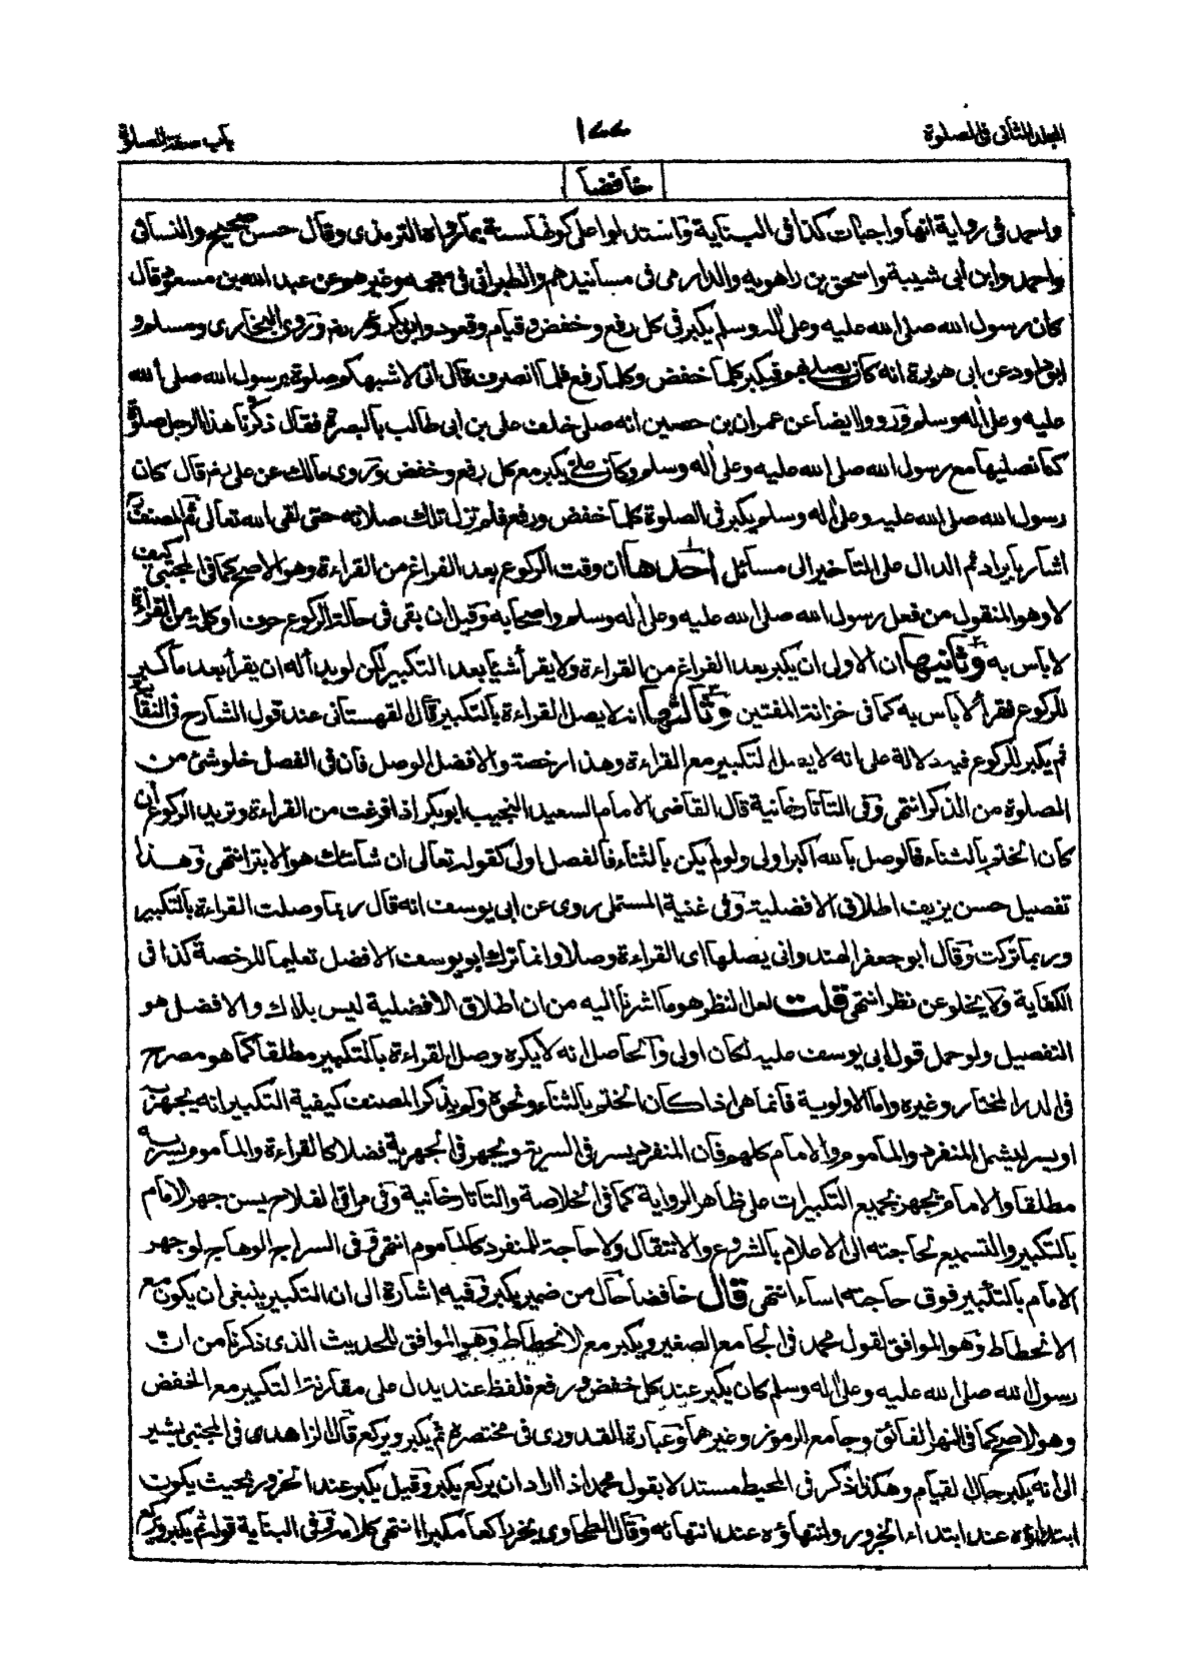 المجلد الثانى فى الصلوة ١٧٧ باب صفة الصلوة
خافضا
واحمد فى رواية انها واجبات كذا فى البناية واستدلوا على كونها سنة بما رواه الترمذى وقال حسن صحيح والنسائى
واحمد وابن أبى شيبة واسحق بن راهويه والدارمى فى مسانيدهم والطبرانى فى معجمه وغيرهم عن عبد الله بن مسعود قال
كان رسول الله صلى الله عليه وعلى اله وسلم يكبر فى كل رفع وخفض وقيام وقعود وابو بكر وعمر وروى البخارى ومسلم و
ابو داود عن ابى هريرة انه كان يصلى بهم فيكبر كلما خفض وكلما رفع فلما انصرف قال انى لاشبهكم صلوة برسول الله صلى الله
عليه وعلى اله وسلم ورووا ايضا عن عمران بن حصين انه صلى خلف على بن ابى طالب بالبصرة فقال ذكرنا هذا الرجل صلوة
كنا نصليها مع رسول الله صلى الله عليه وعلى اله وسلم وكان على يكبر مع كل رفع وخفض وروى مالك عن على قال كان
رسول الله صلى الله عليه وعلى اله وسلم يكبر فى الصلوة كلما خفض ورفع فلم تزل تلك صلاته حتى لقى الله تعالى ثم المصنف
اشار بايراد ثم الدال على التاخير الى مسائل احدها ان وقت الركوع بعد الفراغ من القراءة وهو الاصح كما فى المجتبى كيف
لا وهو المنقول من فعل رسول الله صلى الله عليه وعلى اله وسلم واصحابه وقيل ان بقى فى حالة الركوع حرف او كلمة من القراءة
لا باس به وثانيها ان الاولى ان يكبر بعد الفراغ من القراءة ولا يقرأ شيئا بعد التكبير لكن لو بدأ له ان يقرأ بعد ما كبر
للركوع فقرأ لا بأس به كما فى خزانة المفتين وثالثها انه لا يصل القراءة بالتكبير قال القهستانى عند قول الشارح فى النقاية
ثم يكبر للركوع فيه دلالة على انه لا يصل التكبير مع القراءة وهذا رخصة والافضل الوصل فان فى الفصل خلو شئ من
الصلوة من الذكر انتهى وفى التاتارخانية قال القاضى الامام السعيد النجيب ابو بكر اذا فرغت من القراءة وتريد الركوع ان
كان الختم بالثناء فالوصل بالله اكبر اولى ولو لم يكن بالثناء فالفصل اولى كقوله تعالى ان شانئك هو الابتر انتهى وهذا
تفصيل حسن يزيف اطلاق الافضلية وفى غنية المستملى روى عن ابى يوسف انه قال ربما وصلت القراءة بالتكبير
وربما تركت وقال أبو جعفر الهندوانى يصلها اى القراءة وصلا وانما ترك ابو يوسف الافضل تعليما للرخصة كذا فى
الكفاية ولا يخلو عن نظر انتهى قلت لعل النظر هو ما اشرنا اليه من ان اطلاق الافضلية ليس بذاك والافضل هو
التفصيل ولو حمل قول ابى يوسف عليه لكان اولى والحاصل انه لا يكره وصل القراءة بالتكبير مطلقا كما هو مصرح
فى الدر المختار وغيره واما الاولوية فانما هى اذا كان الختم بالثناء ونحوه ولم يذكر المصنف كيفية التكبير انه يجهر به
او يسر ليشمل المنفرد والمأموم والامام كلهم فان المنفرد يسر فى السرية ويجهر فى الجهرية فضلا كالقراءة والمأموم يسر به
مطلقا والامام يجهر بجميع التكبيرات على ظاهر الرواية كما فى الخلاصة والتاتارخانية وفى مراقى الفلاح يسن جهر الامام
بالتكبير والتسميع لحاجته الى الاعلام بالشروع والانتقال ولا حاجة للمنفرد كالمأموم انتهى وفى السراج الوهاج لو جهر
الامام بالتكبير فوق حاجته اساء انتهى قال خافضا حال من ضمير يكبر وفيه اشارة الى ان التكبير ينبغى ان يكون مع
الانحطاط وهو الموافق لقول محمد فى الجامع الصغير ويكبر مع الانحطاط وهو الموافق للحديث الذى ذكرنا من انّ
رسول الله صلى الله عليه وعلى اله وسلم كان يكبر عند كل خفض ورفع فلفظ عند يدل على مقارنة التكبير مع الخفض
وهو الاصح كما فى النهر الفائق وجامع الرموز وغيرهما وعبارة القدورى فى مختصره ثم يكبر ويركع قال الزاهدى فى المجتبى يشير
الى أنه يكبر حال القيام وهكذا ذكر فى المحيط مستدلا بقول محمد اذا اراد ان يركع يكبر وقيل يكبر عند الخرور بحيث يكون
ابتداؤه عند ابتداء الخرور وانتهاؤه عند انتهائه وقال الطحاوى يخر راكعا مكبرا انتهى كلامه وفى البناية قوله ثم يكبر ويركع